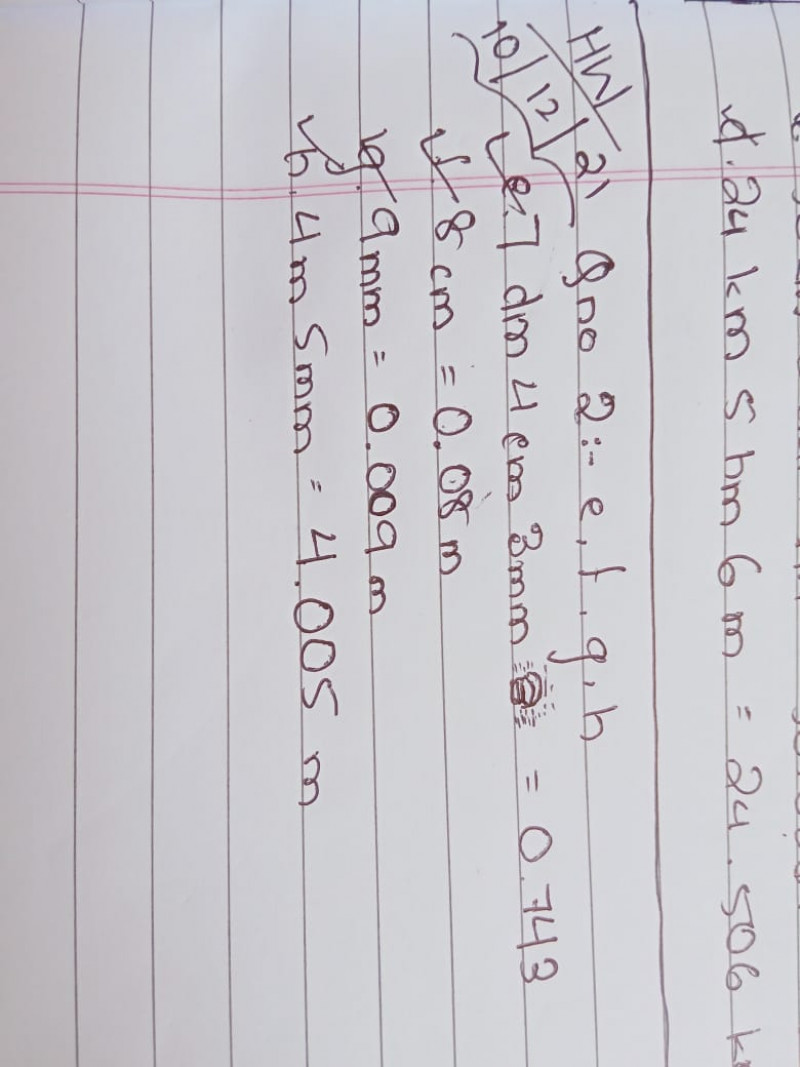 d. 24 km 5 hm 6 m = 24.506 km
HW
10/12/21 Q no 2:- e, f, g, h
e. 7 dm 4 cm 3mm = 0.743
f. 8 cm = 0.08 m
g. 9mm = 0.009 m
h. 4m 5mm = 4.005 m